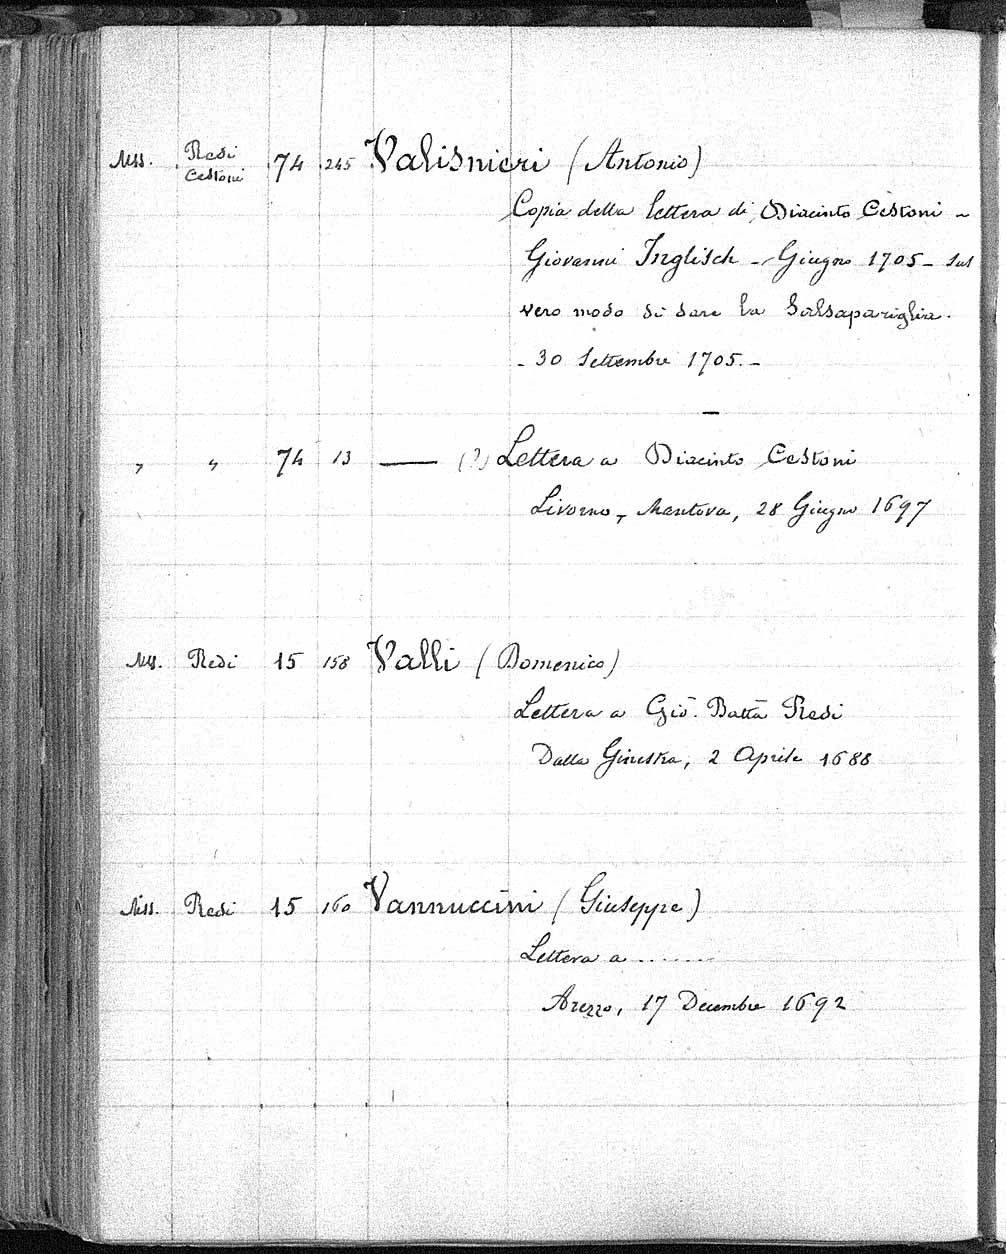 Mss. Redi Cestoni 74 245 Valisnieri (Antonio)
Copia della lettera di Diacinto Cestoni -
Giovanni Inglisch - Giugno 1705 - sul
vero modo di dare la Salsapariglia.
- 30 Settembre 1705. -
—
" " 74 13 —— (?) Lettera a Diacinto Cestoni
Livorno - Mantova, 28 Giugno 1697
Mss. Redi 15 158 Valli (Domenico)
Lettera a Gio. Batta Redi
Dalla Ginestra, 2 Aprile 1688
Mss. Redi 15 160 Vannuccini (Giuseppe)
Lettera a .......
Arezzo, 17 Decembre 1692